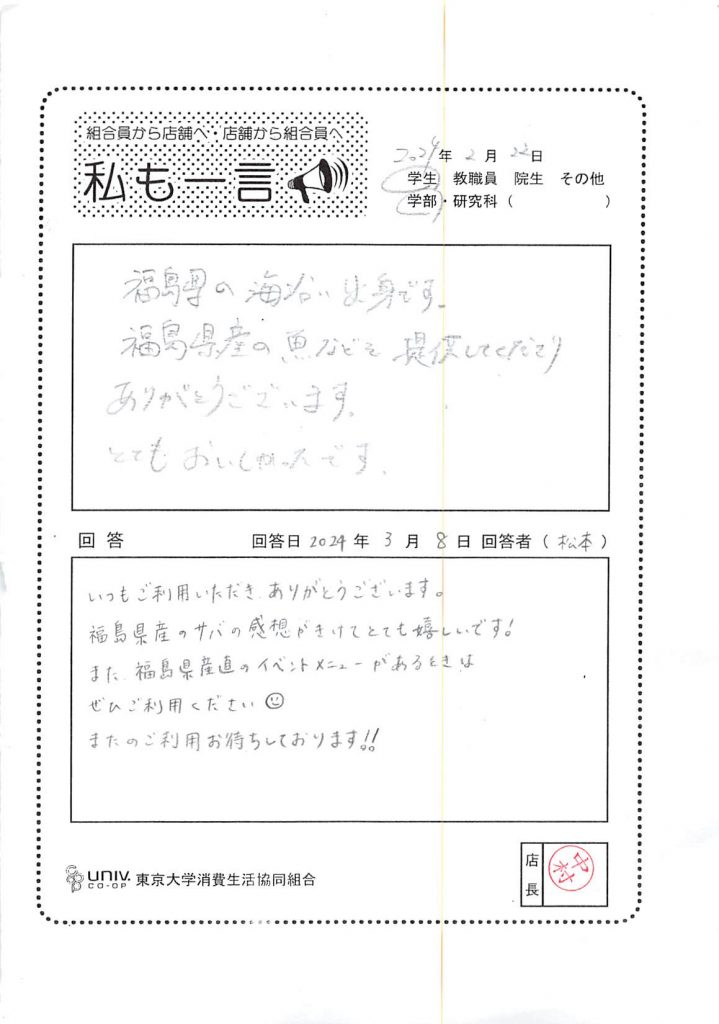 組合員から店舗へ・店舗から組合員へ
私も一言
2024年 2月 22日
学生 教職員 院生 その他
学部・研究科( )
福島県の海沿い出身です。
福島県産の魚などを提供してくださり
ありがとうございます。
とてもおいしかったです。
回答 回答日 2024年 3月 8日 回答者(松本)
いつもご利用いただき、ありがとうございます。
福島県産のサバの感想がきけてとても嬉しいです!
また、福島県産直のイベントメニューがあるときは
ぜひご利用ください
またのご利用お待ちしております!!
UNIV. CO-OP 東京大学消費生活協同組合
店長 中村